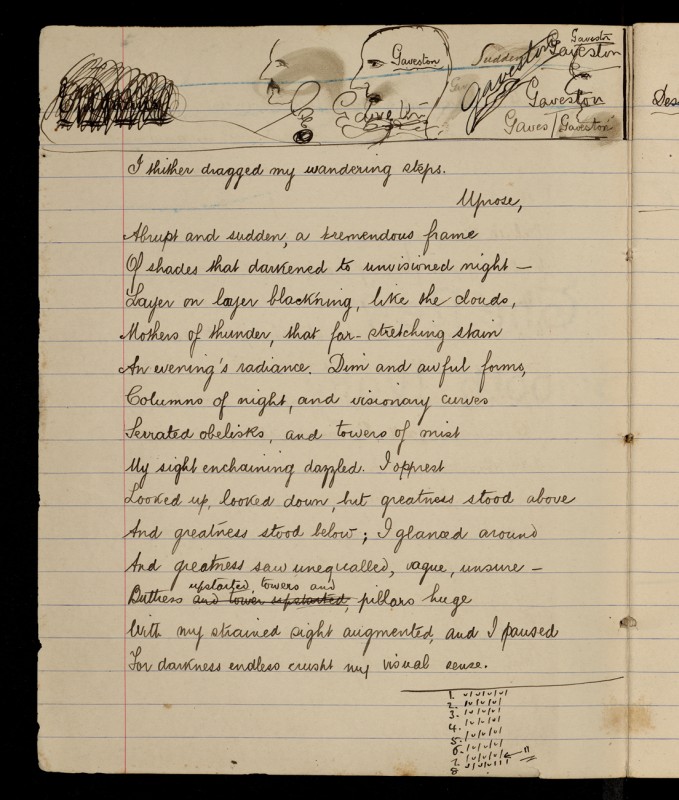 Gaveston
Sudden
Gaveston
Gaveston
Gaveston
Gaveston
Gaveston
Gaves
Gaveston
Des
I thither dragged my wandering steps.
Uprose,
Abrupt and sudden, a tremendous frame
Of shades that darkened to unvisioned night —
Layer on layer blackning, like the clouds,
Mothers of thunder, that far-stretching stain
An evening's radiance. Dim and awful forms,
Columns of night, and visionary curves
Serrated obelisks, and towers of mist
My sight enchaining dazzled. I opprest
Looked up, looked down, but greatness stood above
And greatness stood below; I glanced around
And greatness saw unequalled, vague, unsure —
upstarted, towers and
Buttress and tower upstarted, pillars huge
With my strained sight augmented, and I paused
For darkness endless crusht my visual sense.
1.
2.
3.
4.
5.
6.
7.
8